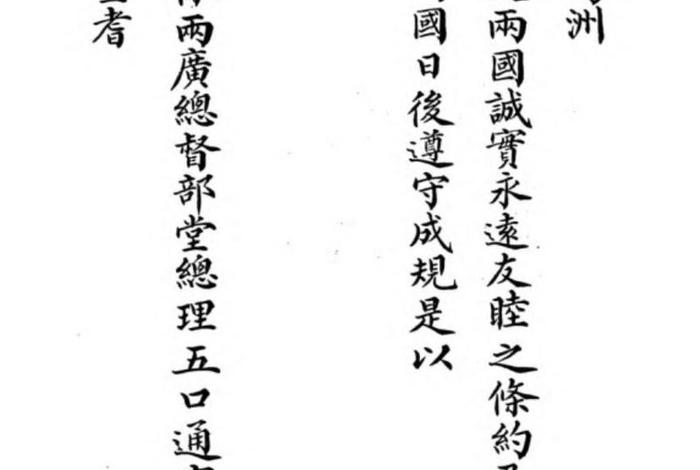 洲
兩國誠實永遠友睦之條約
國日後遵守成規是以
兩廣總督部堂總理五口通
耆